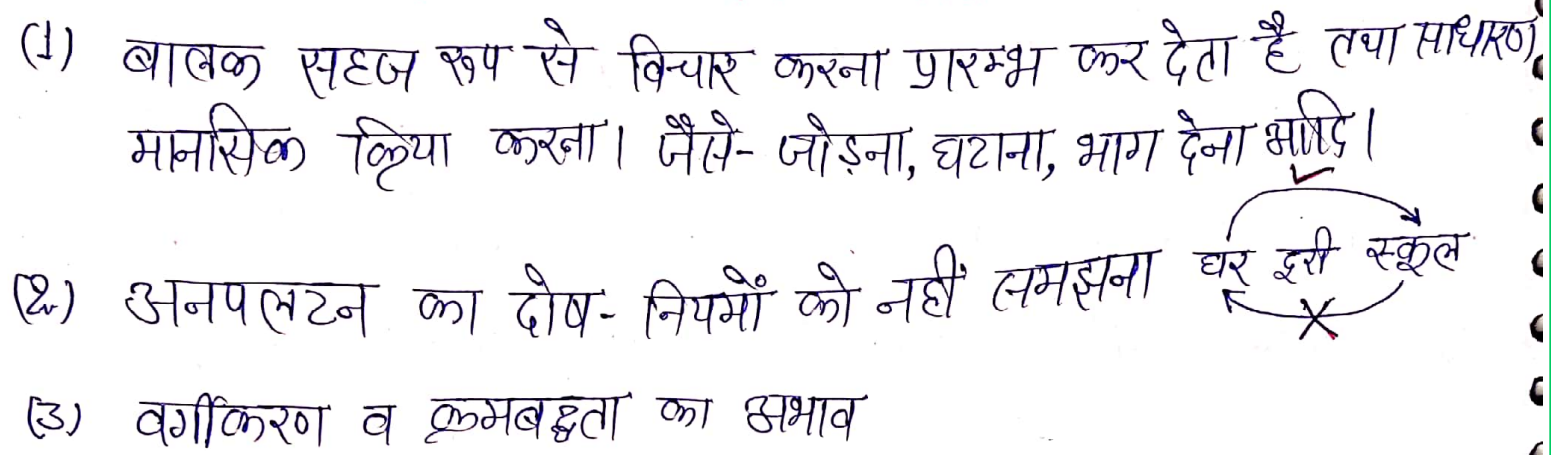 (1) बालक सहज रूप से विचार करना प्रारम्भ कर देता है तथा साधारण
मानसिक क्रिया करना। जैसे- जोड़ना, घटाना, भाग देना आदि।
(2) अनपलटन का दोष- नियमों को नहीं समझना घर दूरी स्कूल
(3) वर्गीकरण व क्रमबद्धता का अभाव